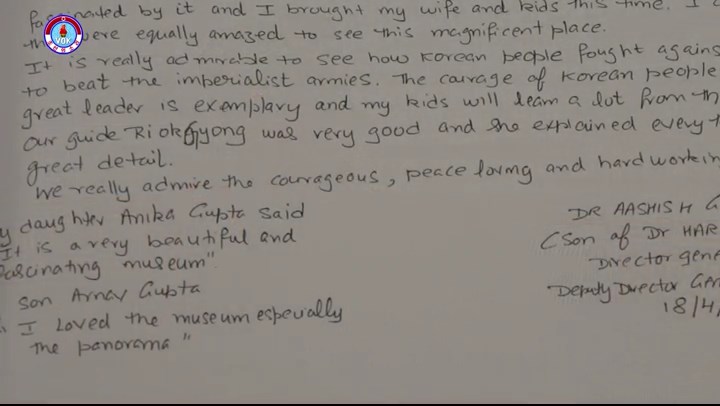 VOK
by it and I brought my wife and kids this time. I
were equally amazed to see this magnificent place.
It is really admirable to see how Korean people fought agains
to beat the imperialist armies. The courage of Korean people
great leader is exemplary and my kids will learn a lot from th
Our guide Ri ok Gyong was very good and she explained every t
great detail.
We really admire the courageous, peace loving and hard workin
y daughter Anika Gupta said
It is a very beautiful and
fascinating museum"
son Arnav Gupta
I Loved the museum especially
the panorama"
DR AASHISH G
(Son of Dr HAR
Director gene
Deputy Director Gen
18/4/